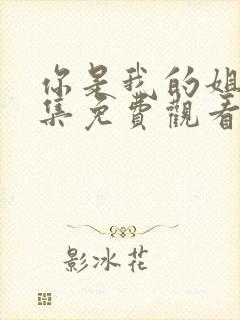 你是我的姐
集免費觀看
影冰花